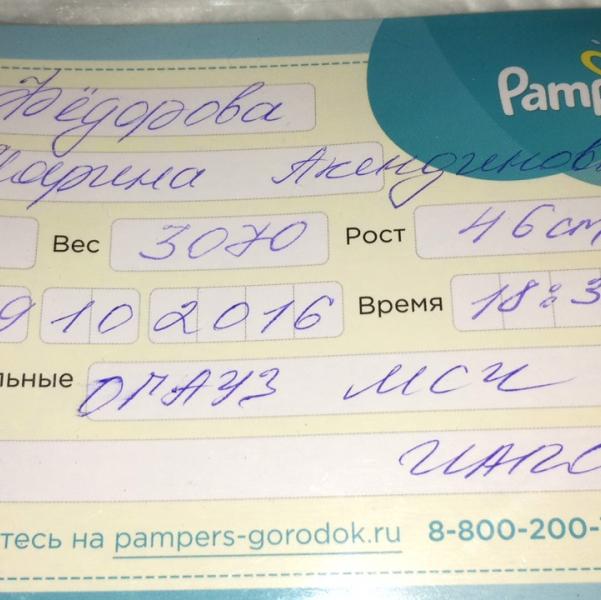 Pamp
Фёдорова
Марина Акендиновна
Вес 3070 Рост 46 cm
9 10 2016 Время 18:3
льные ОГАУЗ МСЧ
ИАПО
тесь на pampers-gorodok.ru 8-800-200-